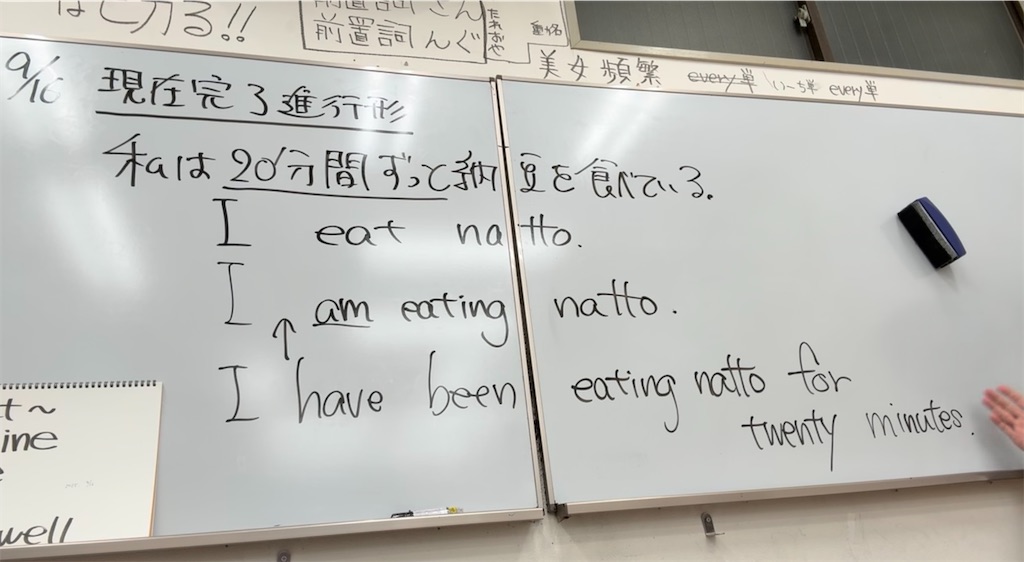 切る!!
前置詞 さん
前置詞 んぐ
美女頻繁 every単 いち単 every単
9/16 現在完了進行形
私は20分間ずっと納豆を食べている。
I eat natto.
I am eating natto.
↑
I have been eating natto for
twenty minutes.
t~
ine
well